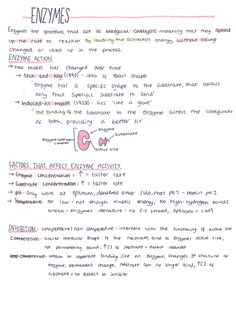 ENZYMES
Enzymes are proteins that act as biological catalysts meaning that they speed
up the rate of reaction by lowering the activation energy without being
changed or used up in the process.
ENZYME ACTION
→ the model has changed over time
→ lock and key (1890) - idea of exact shape
enzyme has a specific shape to the substrate, that allows
only that specific substrate to bind
→ Induced-fit model (1958) - fits 'like a glove'
the binding of the substrate to the enzyme alters the configuration
of both, providing a better fit
enzyme-substrate complex
active site
FACTORS THAT AFFECT ENZYME ACTIVITY
→ Enzyme concentration = ↑ = faster rate
→ Substrate concentration = ↑ = faster rate
→ pH - only work at optimum, denatured either side.
→ Temperature - low = not enough kinetic energy, too high = hydrogen bonds
break = enzymes denature = no E-S formed, optimum
INHIBITION - competitive/non competitive - interfere with the functioning of active site
COMPETITIVE - similar molecular shape to the substrate, bind to enzymes active site,
no permanent bond. ↑[ ] of substrate = effect reduced
NON-COMPETITIVE - attach to separate binding site on enzyme, changes 3° structure of
enzyme, permanent change, substrate can no longer bind, ↑[ ] of
substrate = no effect on inhibitor